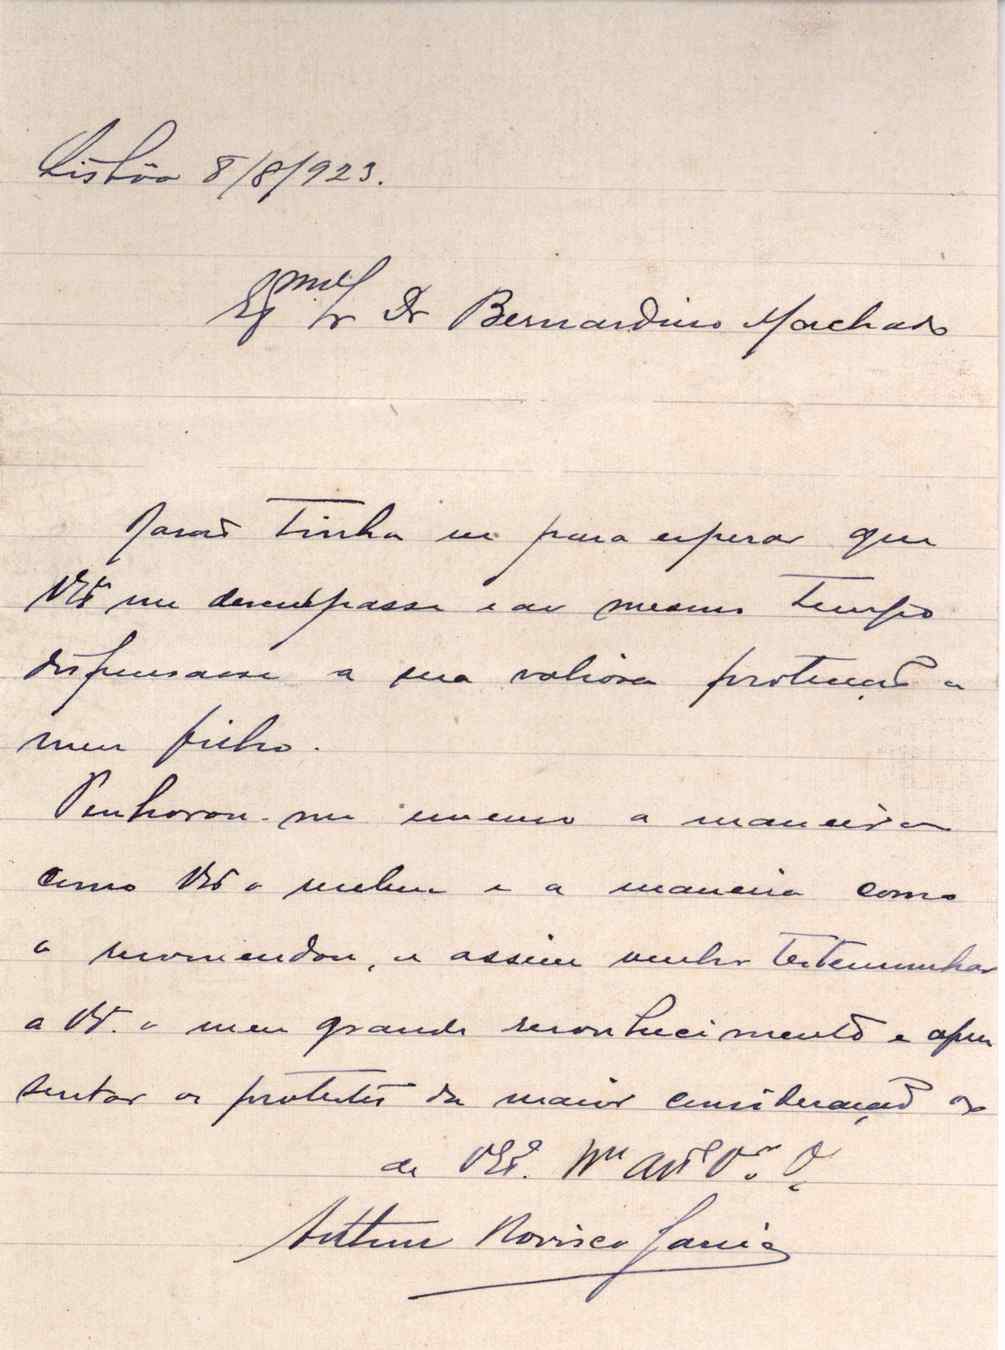 Lisbôa 8/8/923.
Exmo Sr Dr Bernardino Machado
Rasão tinha eu para esperar que
VExa me desculpasse e ao mesmo tempo
dispensasse a sua valiosa protecção a
meu filho.
Penhorou-me imenso a maneira
como VExa o recebeu e a maneira como
o recomendou, e assim venho testemunhar
a VExa. o meu grande reconhecimento e apre
sentar os protestos da maior consideração os
de VExa. Mto Atto Vor
Arthur Rovisco Garcia